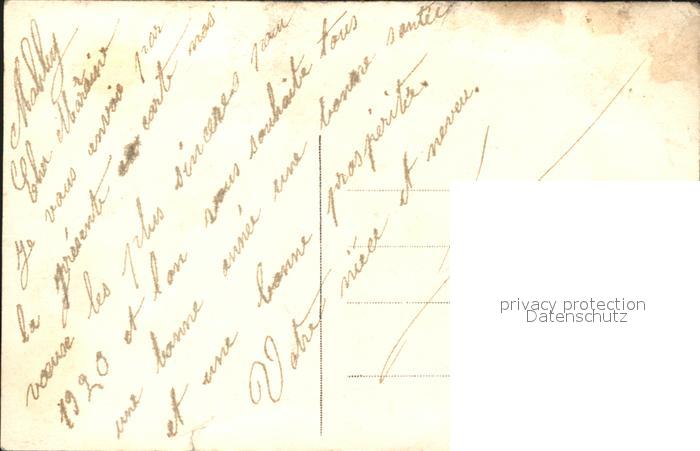 Chablis
Cher Maraine
Je vous envoie par
la présente carte mes
voeux les plus sinceres pour
1920 et l'on vous souhaite tous
une bonne année une bonne santée
et une bonne prospérité.
Votre niéce et neveu.
privacy protection
Datenschutz